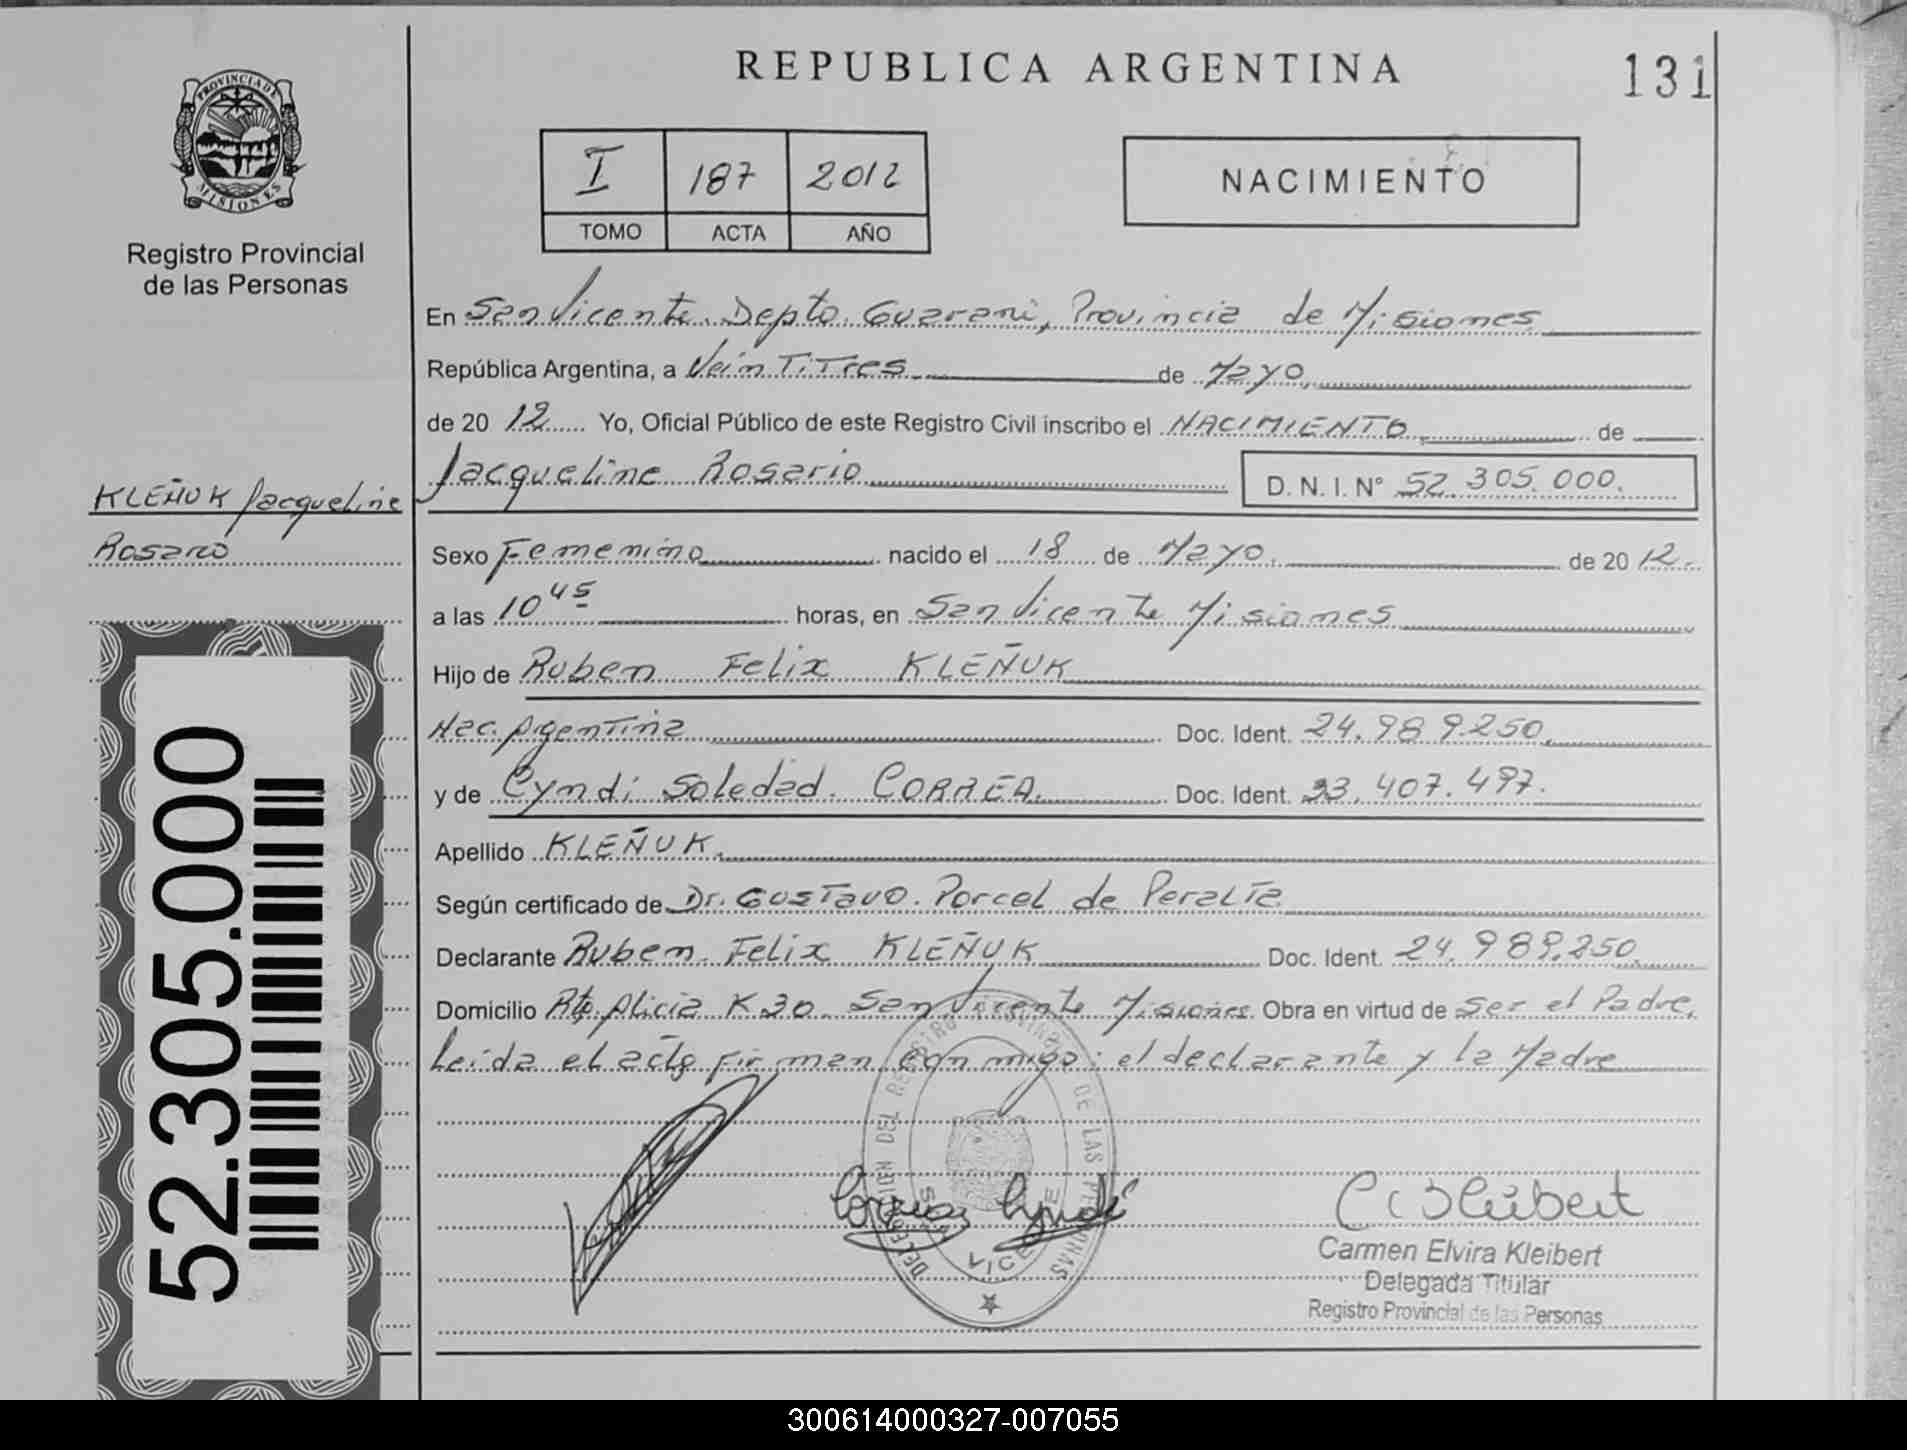 REPUBLICA ARGENTINA
131
PROVINCIA DE
MISIONES
Registro Provincial
de las Personas
I 187 2012
TOMO ACTA AÑO
NACIMIENTO
En San Vicente. Depto. Guarani, Provincia de Misiones
República Argentina, a VeinTiTres de Mayo
de 2012 Yo, Oficial Público de este Registro Civil inscribo el NACIMIENTO de
Jacqueline Rosario
D. N. I. N° 52.305.000.
KLEÑUK Jacqueline
Rosario
Sexo Femenino nacido el 18 de Mayo de 2012.
a las 10 45 horas, en San Vicente Misiones
Hijo de Ruben Felix KLEÑUK
Nac. Argentina Doc. Ident. 24.989.250
y de Cyndi Soledad. CORREA. Doc. Ident. 33.407.497.
Apellido KLEÑUK.
Según certificado de Dr. Gustavo. Porcel de Peralta
Declarante Ruben Felix KLEÑUK Doc. Ident. 24.989.250
Domicilio Rto. Alicia K 30 San Vicente Misiones Obra en virtud de Ser el Padre.
Leida el acta firman conmigo: el declarante y la Madre
52.305.000
DELEGACION DEL REGISTRO PROVINCIAL DE LAS PERSONAS
Correa Cyndi
C Kleibert
Carmen Elvira Kleibert
Delegada Titular
Registro Provincial de las Personas
300614000327-007055